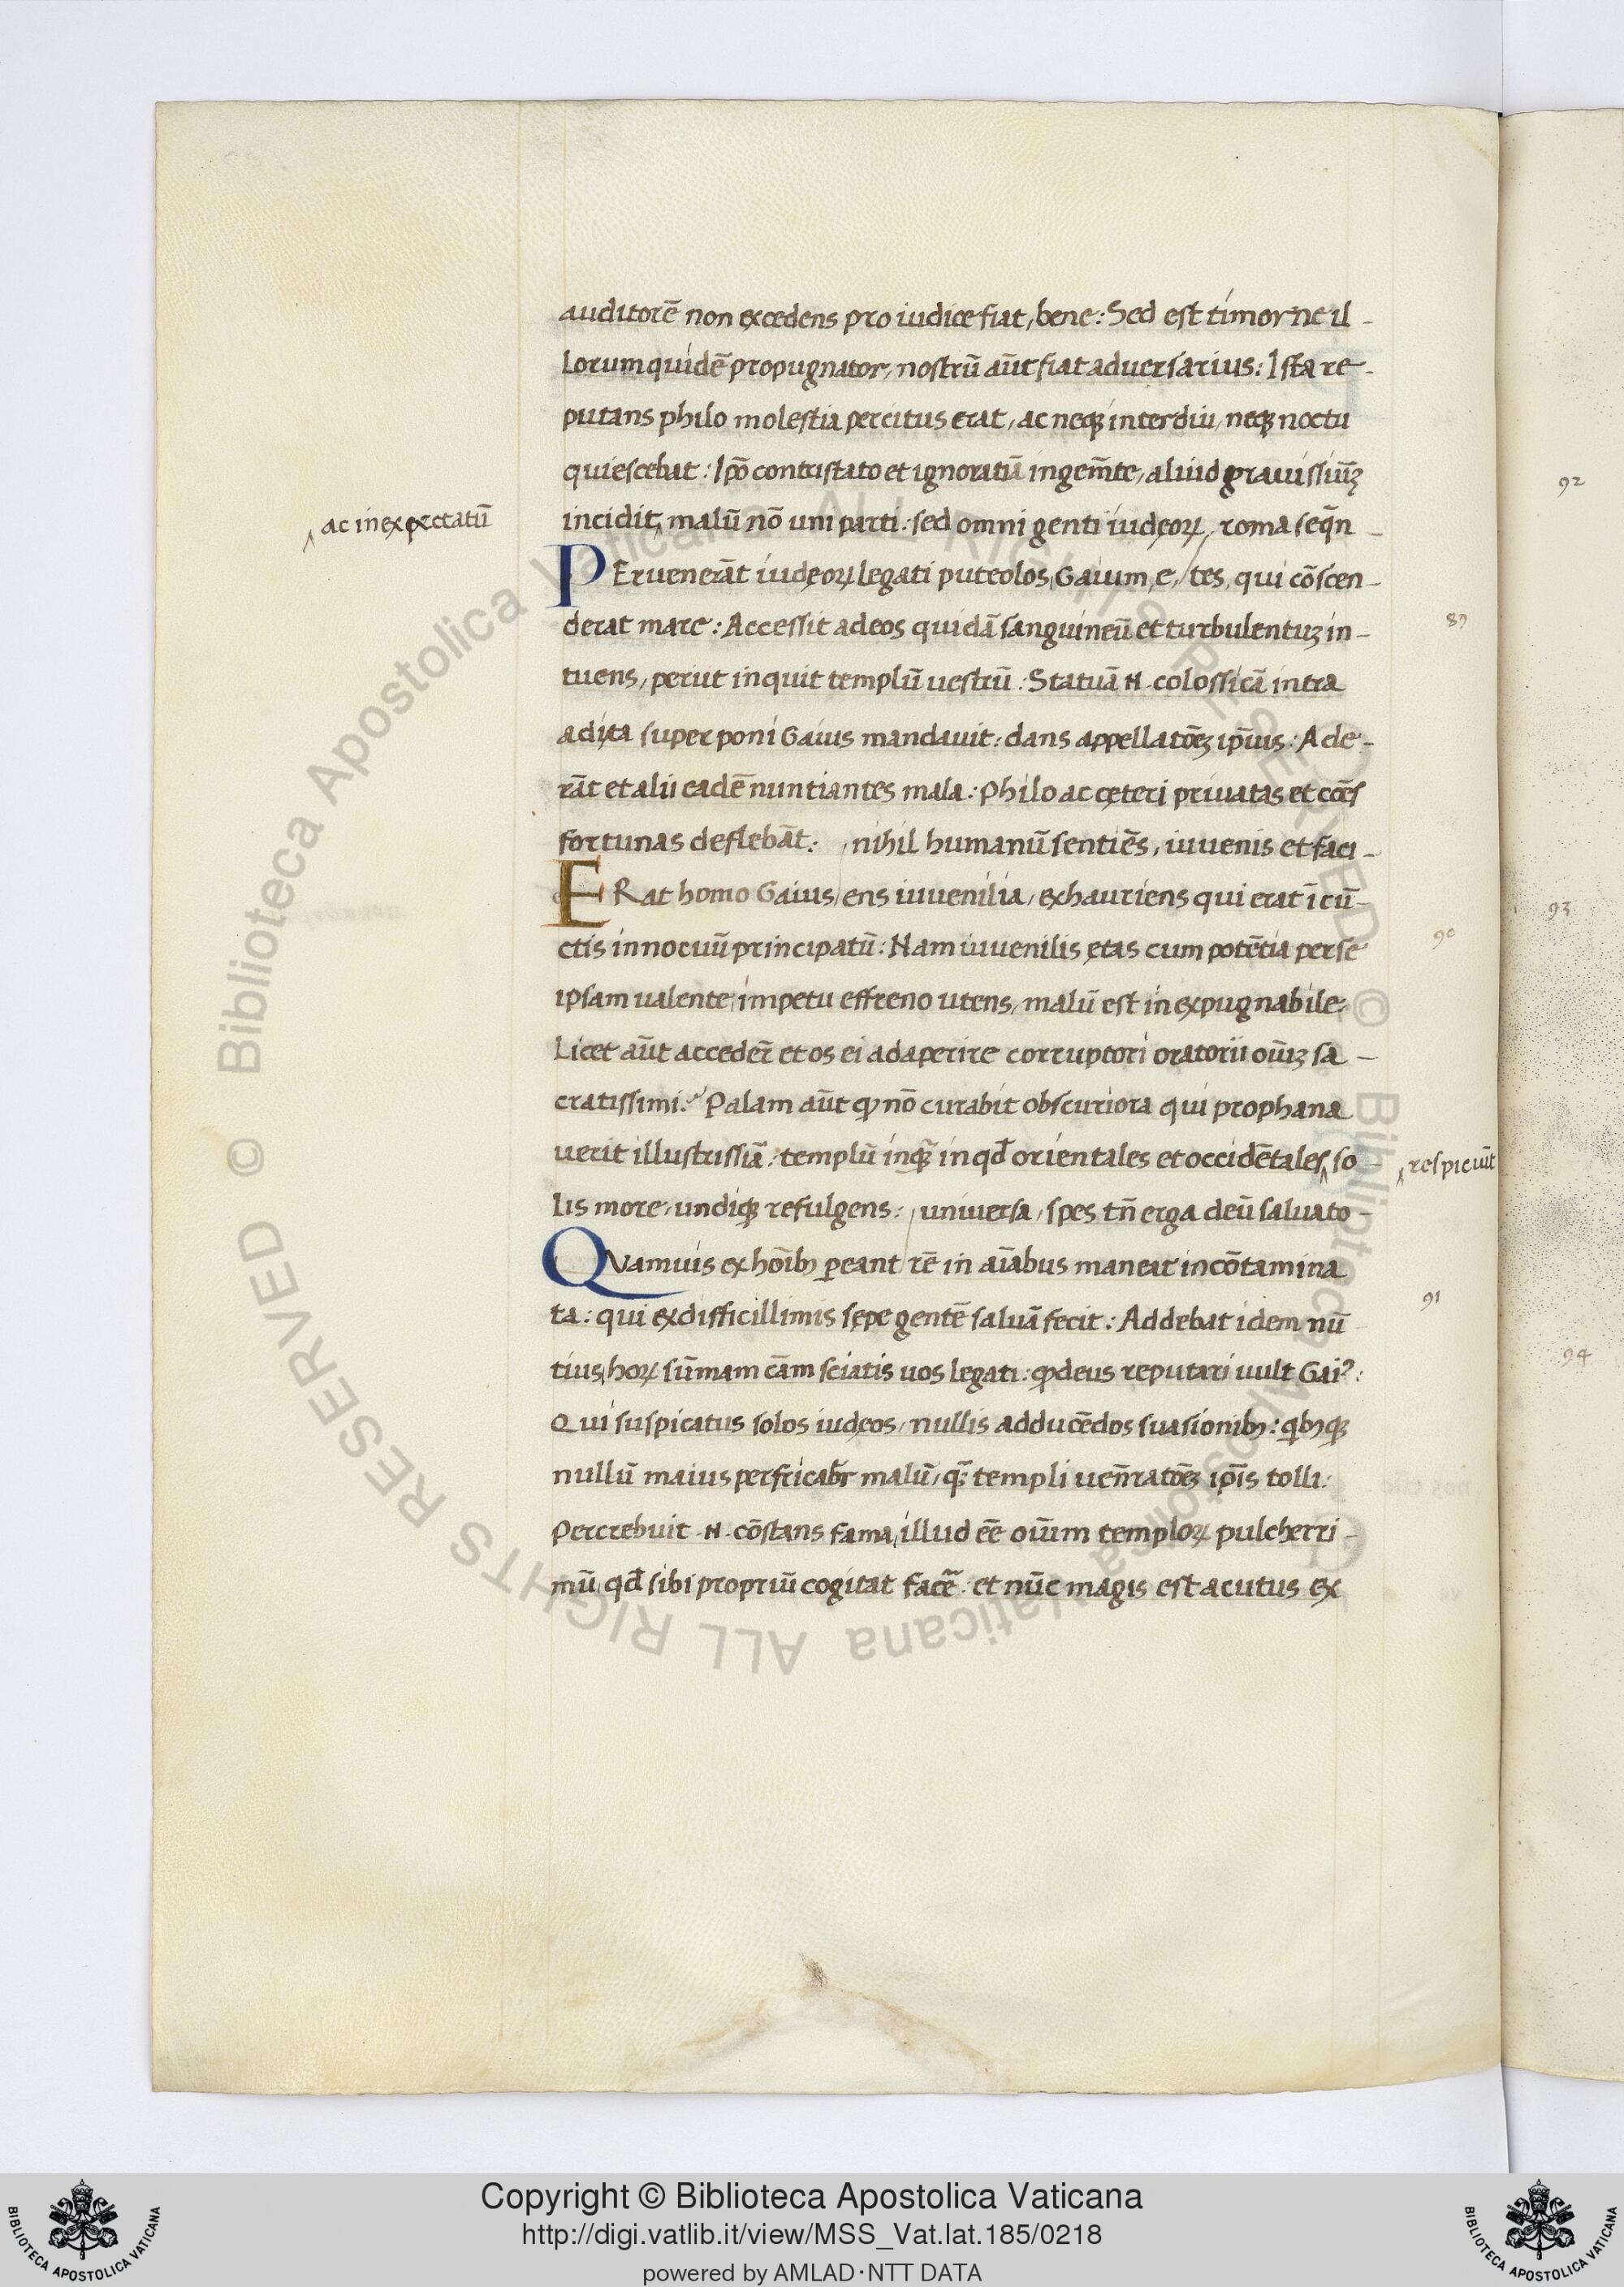 auditorē non excedens pro iudice fiat, bene: Sed est timor ne il-
lorum quidē propugnator, nostrū aūt fiat adversarius: Ista re-
putans philo molestia percitus erat, ac neqꝫ interdiu, neqꝫ noctu
quiescebat: Ipō contristato et ignoratiā ingem̄te, aliud gravissiūꝫ
ac inexpectatū
incidit, malū nō uni parti: sed omni genti iudęoꝝ, roma seq̄n-
PErvenerāt iudęoꝝ legati puteolos, Gaium, e, /tes, qui cōscen-
derat mare: Accessit ad eos quidā sanguineū et turbulentuꝫ in-
89
tuens, periit inquit templū vestrū: Statuā .N. colossicā intra
adita superponi Gaius mandavit: dans appellatōeꝫ ip̄ius: Ade-
rāt et alii eadē nuntiantes mala: Philo ac cęteri privatas et cōes
fortunas deflebāt: , nihil humanū sentiēs, iuvenis et faci-
ERat homo Gaius/ens iuvenilia, exhauriens qui erat ī cū-
ctis innocuū principatū: Nam iuvenilis ętas cum potētia per se
90
ipsam valente, impetu effreno utens, malū est inexpugnabile.
Licet aūt accedeř et os ei adaperire corruptori oratorii oīuꝫ sa-
cratissimi: Palam aūt ꝙ nō curabit obscuriora qui prophana
verit illustrissiā: templū inqꝫ in qđ orientales et occidētales, so-
respiciūt
lis more, undiqꝫ refulgens: , universa, spes tn̄ erga deū salvato-
QVamvis ex hoībꝫ ꝑeant/rē in aīabus maneat incōtamina
ta: qui ex difficillimis sępe gentē salvā fecit: Addebat idem nū
91
tius, hoꝝ sūmam cām sciatis vos legati: ꝙ deus reputari vult Gaiꝰ:
Qui suspicatus solos iudęos, nullis adducēdos suasionibꝫ: qͥbꝫqꝫ
nullū maius perfricabr̄ malū, qꝫ templi ven̄ratōeꝫ ip̄is tolli:
Percrebuit .N. cōstans fama, illud eē oīum temploꝝ pulcherri-
mū, qđ sibi propriū cogitat facē: et nūc magis est acutus ex
92
93
94
Copyright © Biblioteca Apostolica Vaticana
http://digi.vatlib.it/view/MSS_Vat.lat.185/0218
powered by AMLAD·NTT DATA
BIBLIOTECA APOSTOLICA VATICANA
BIBLIOTECA APOSTOLICA VATICANA
© Biblioteca Apostolica Vaticana ALL RIGHTS RESERVED © Biblioteca Apostolica Vaticana ALL RIGHTS RESERVED